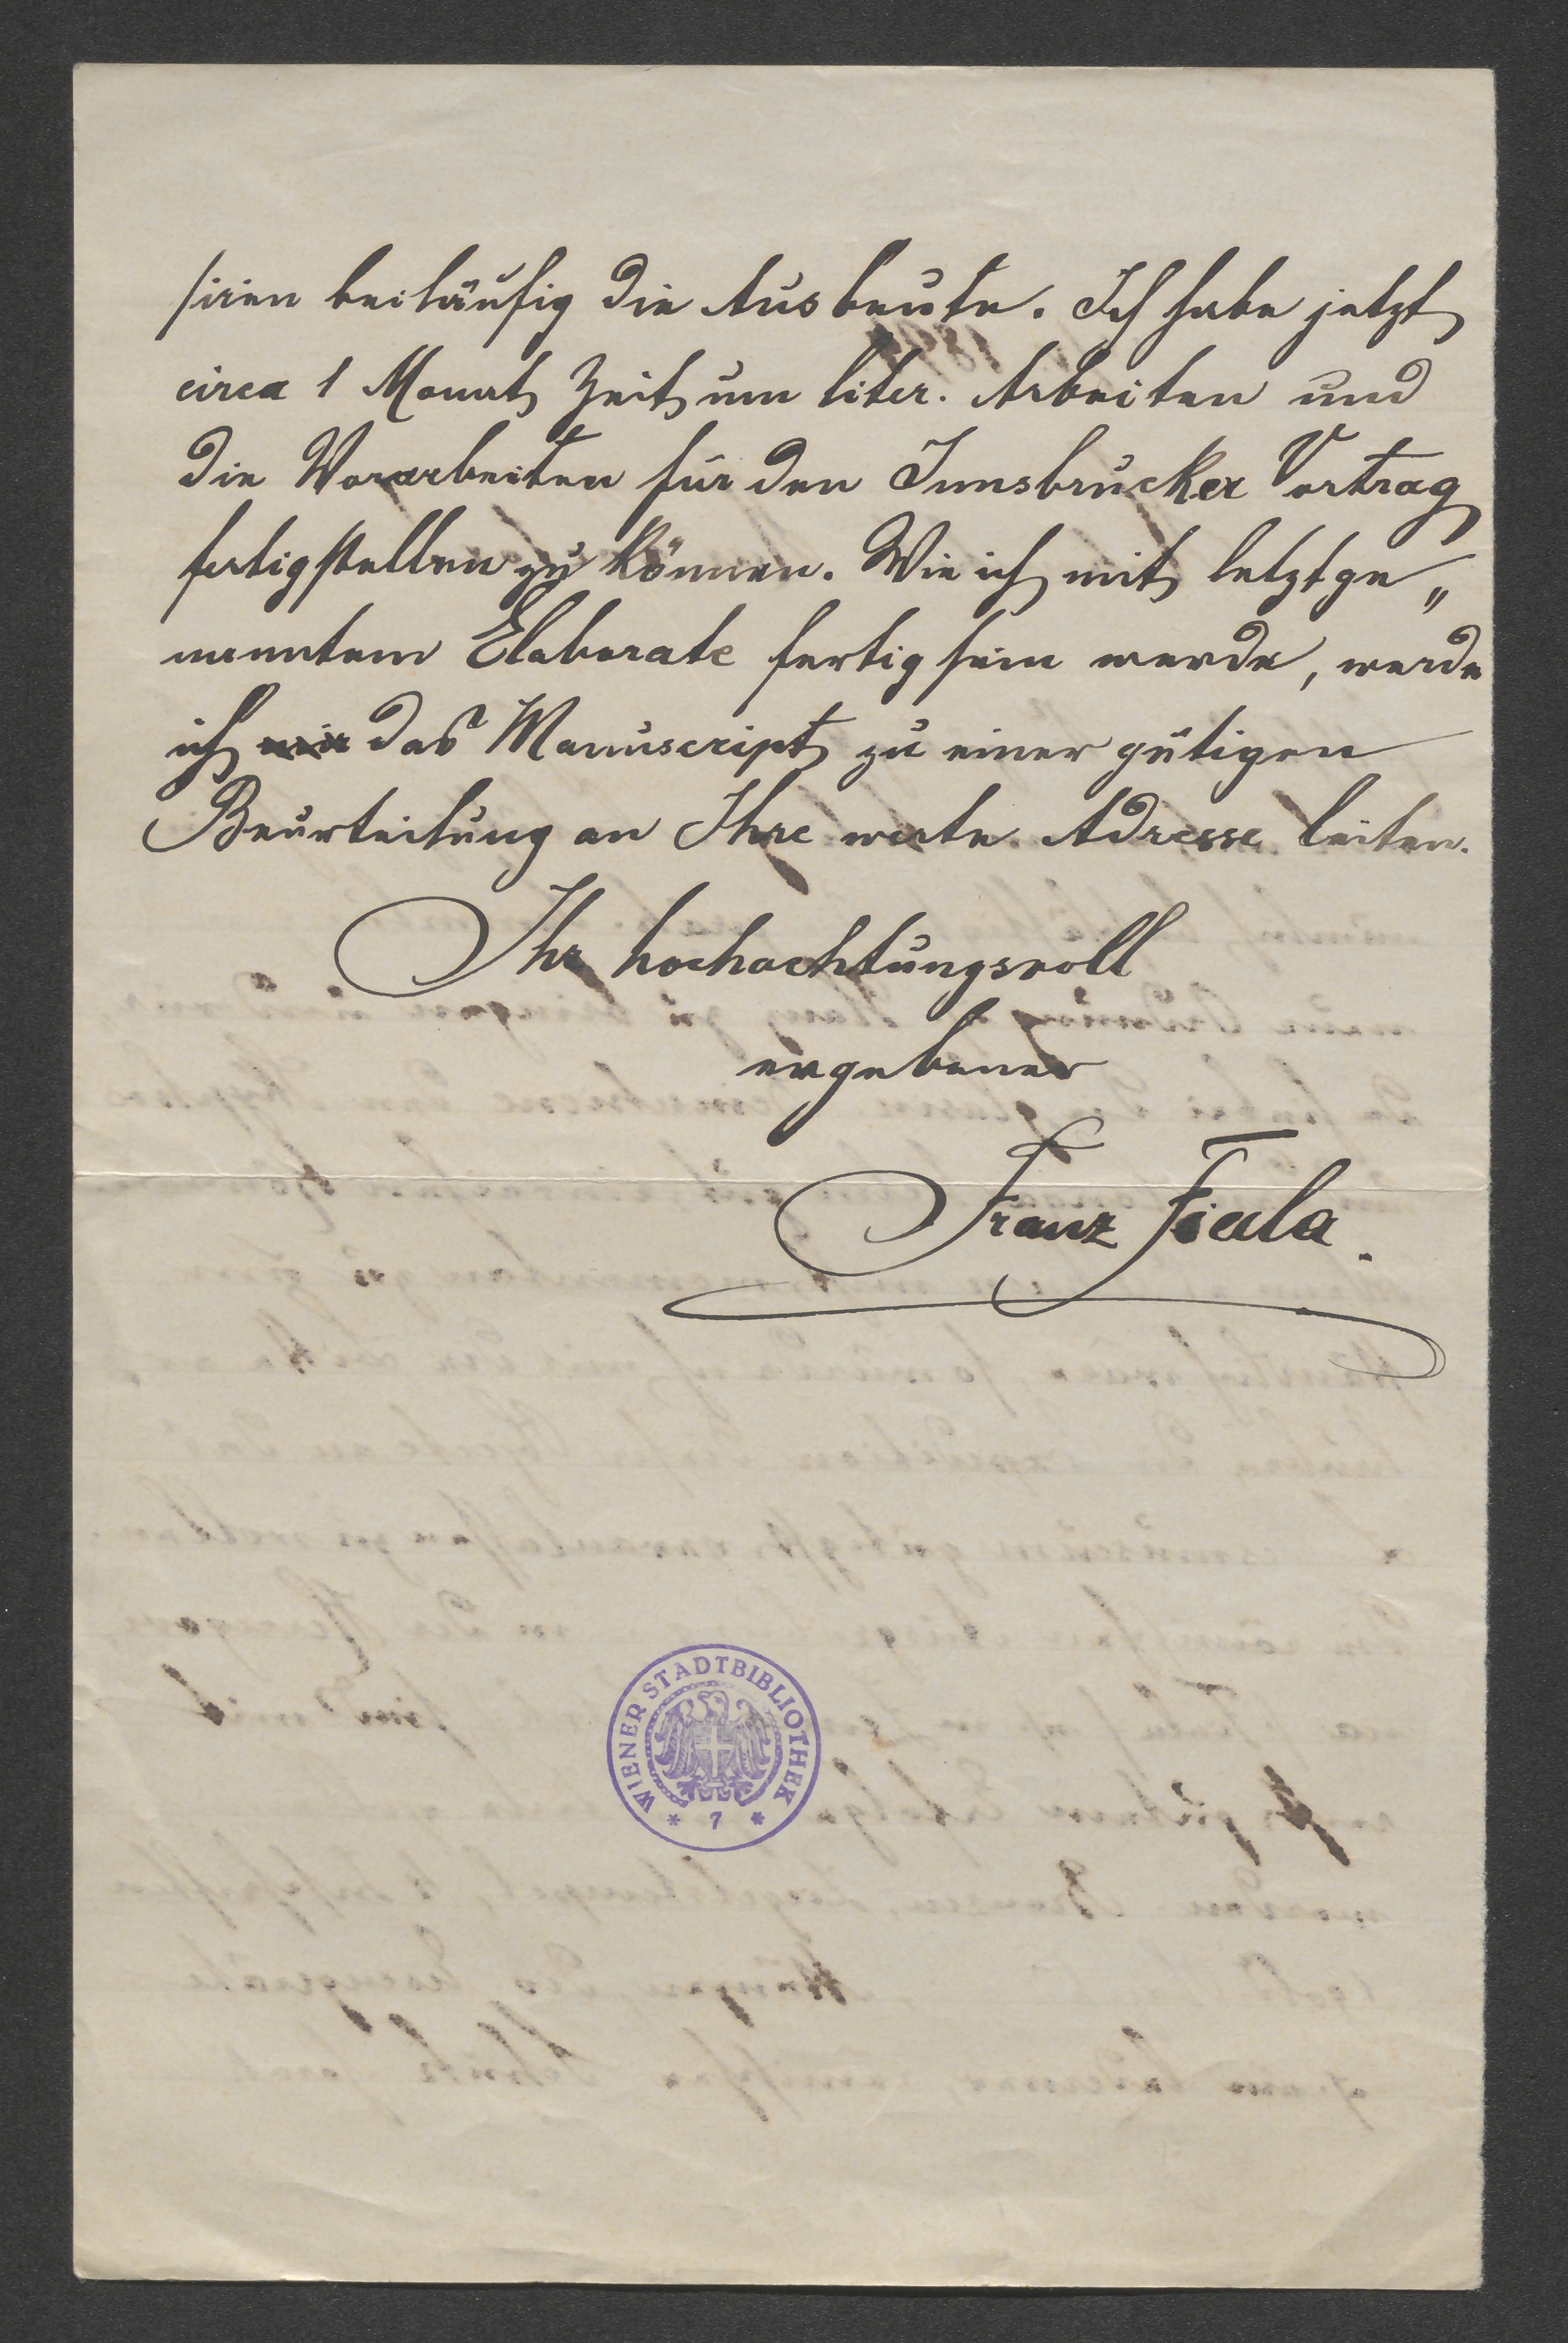 siren beiläufig die Ausbeute. Ich habe jetzt
circa 1 Monat Zeit um liter. Arbeiten und
die Vorarbeiten für den Innsbrucker Vortrag
fertigstellen zu können. Wie ich mit letztge„
nanntem Elaborate fertig sein werde, werde
ich mir das Manuscript zu einer gütigen
Beurteilung an Ihre werte Adresse leiten.
Ihr hochachtungsvoll
ergebener
Franz Fiala.
WIENER STADTBIBLIOTHEK
* 7 *